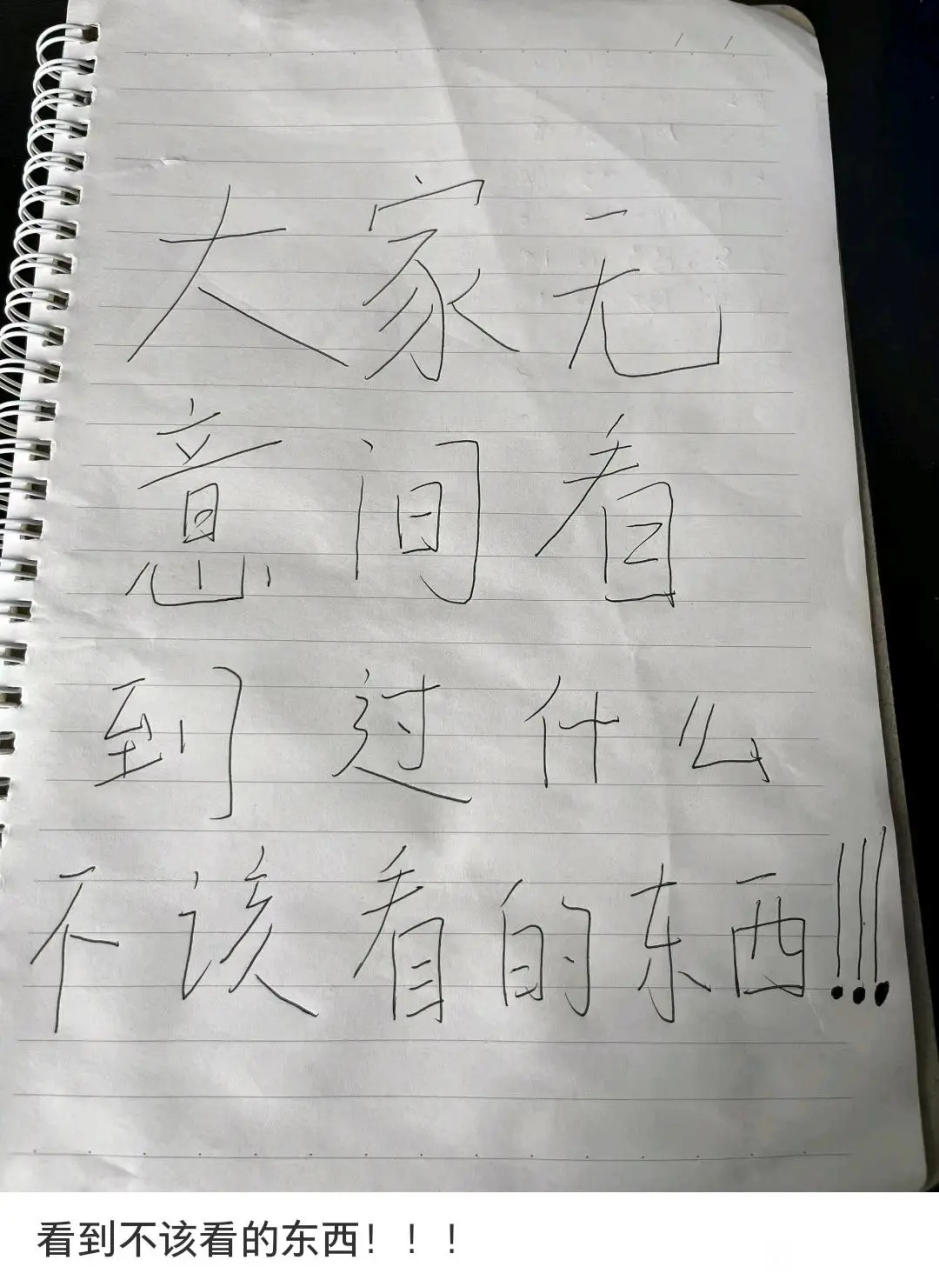 大家无
意间看
到过什么
不该看的东西!!!
看到不该看的东西！！！